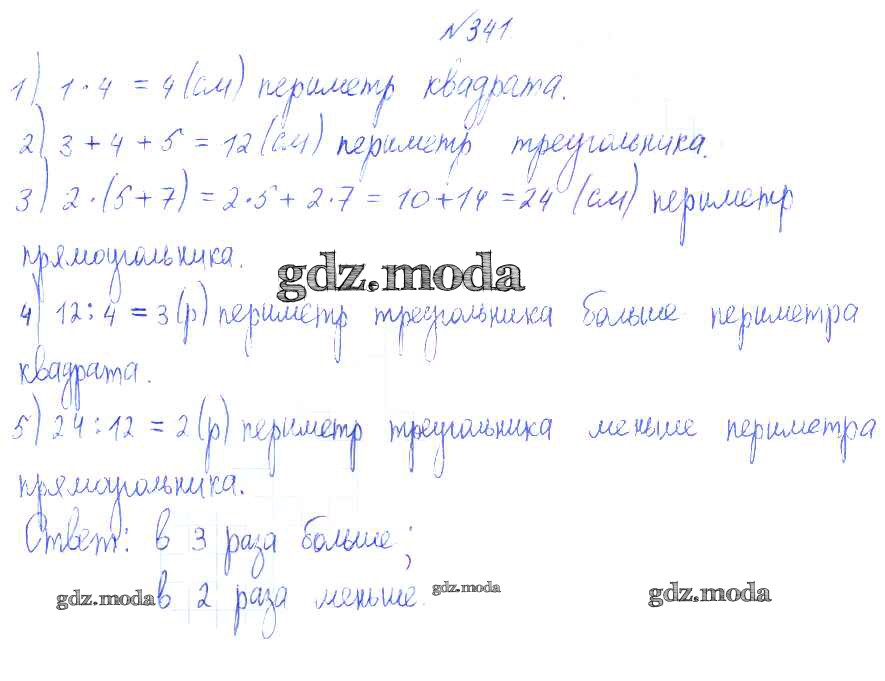 №341.
1) 1·4 = 4 (см) периметр квадрата.
2) 3 + 4 + 5 = 12 (см) периметр треугольника.
3) 2·(5+7) = 2·5 + 2·7 = 10+14 = 24 (см) периметр
прямоугольника.
gdz.moda
4) 12:4 = 3 (р) периметр треугольника больше периметра
квадрата.
5) 24:12 = 2 (р) периметр треугольника меньше периметра
прямоугольника.
Ответ: в 3 раза больше;
в 2 раза меньше.
gdz.moda gdz.moda gdz.moda